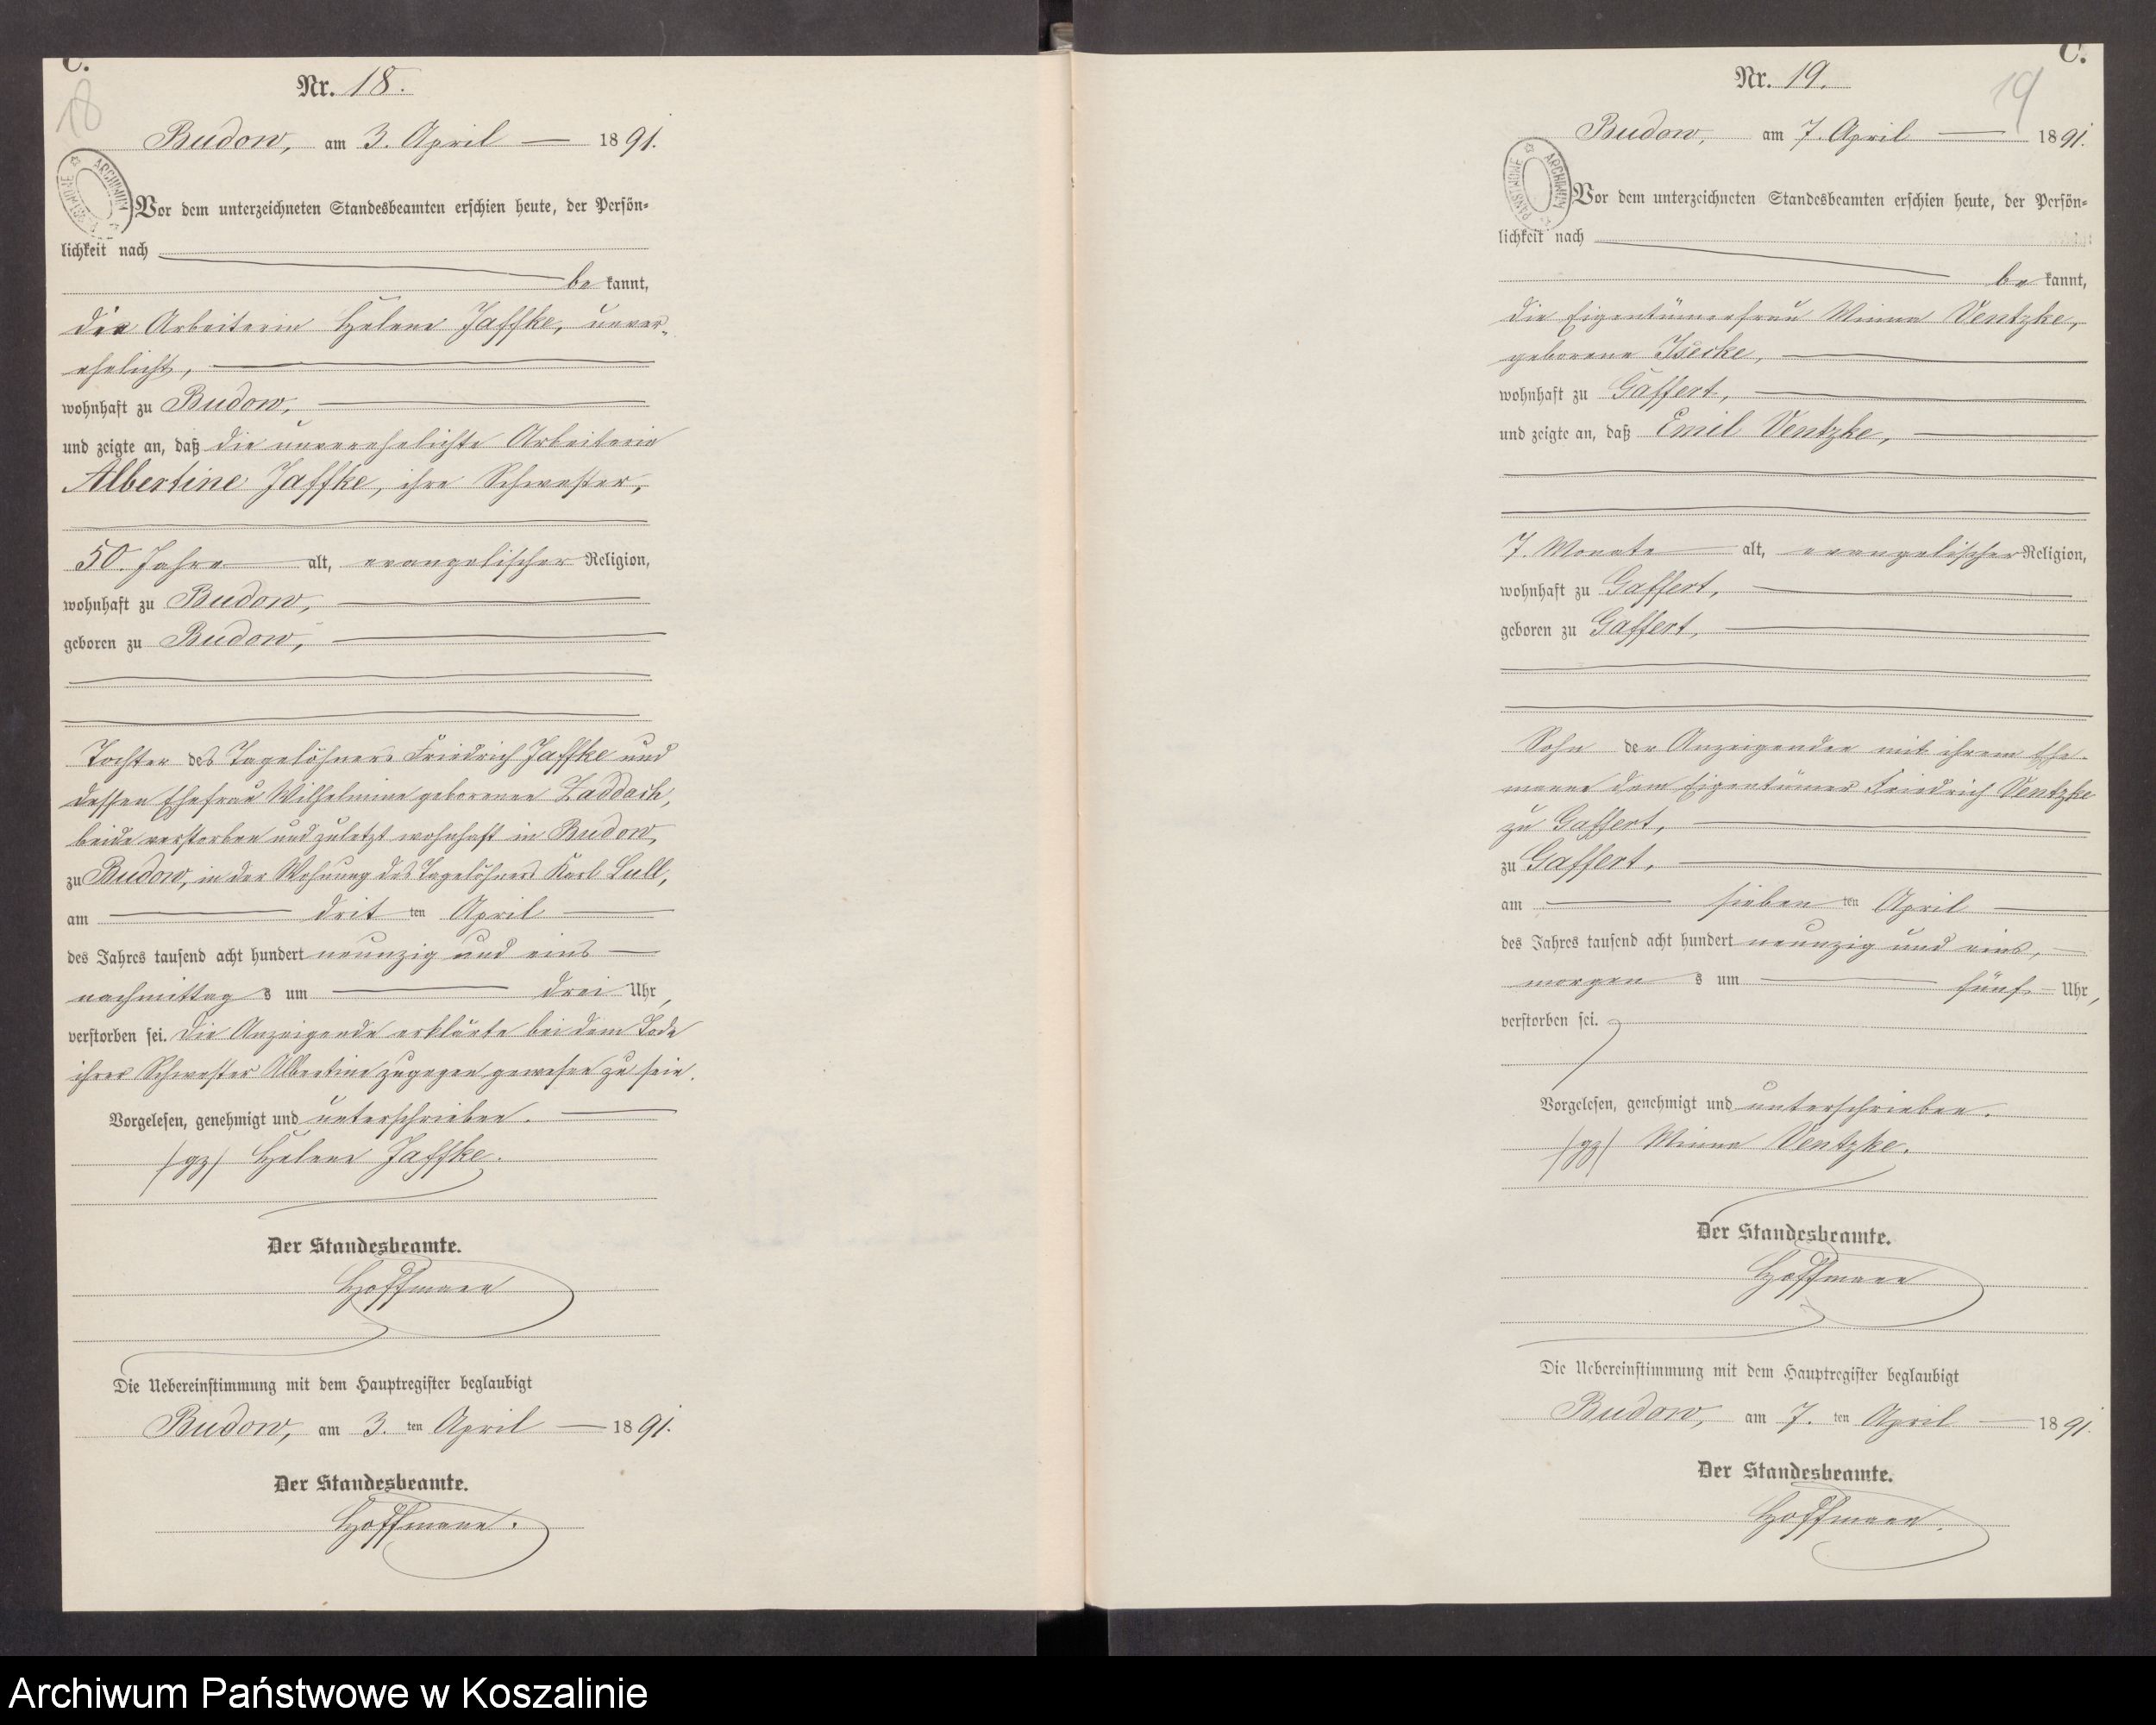 C.
Nr. 18.
18
Budow, am 3. April 1891.
ARCHIWUM PAŃSTWOWE
Vor dem unterzeichneten Standesbeamten erschien heute, der Persön-
lichkeit nach
be kannt,
die Arbeiterin Helene Jaffke, unver-
ehelicht,
wohnhaft zu Budow,
und zeigte an, daß die unverehelichte Arbeiterin
Albertine Jaffke, ihre Schwester,
50. Jahre alt, evangelischer Religion,
wohnhaft zu Budow,
geboren zu Budow,
Tochter des Tagelöhners Friedrich Jaffke und
dessen Ehefrau Wilhelmine geborenen Laddach,
beide verstorben und zuletzt wohnhaft in Budow,
zu Budow, in der Wohnung des Tagelöhners Karl Lull,
am drit ten April
des Jahres tausend acht hundert neunzig und eins
nachmittag s um drei Uhr,
verstorben sei. Die Anzeigende erklärte bei dem Tode
ihrer Schwester Albertine zugegen gewesen zu sein.
Vorgelesen, genehmigt und unterschrieben.
/gz/ Helene Jaffke.
Der Standesbeamte.
Hoffmann
Die Uebereinstimmung mit dem Hauptregister beglaubigt
Budow, am 3. ten April 1891.
Der Standesbeamte.
Hoffmann.
C.
Nr. 19.
19
Budow, am 7. April 1891.
ARCHIWUM PAŃSTWOWE
Vor dem unterzeichneten Standesbeamten erschien heute, der Persön-
lichkeit nach
be kannt,
die Eigentümerfrau Minna Ventzke,
geborene Isecke,
wohnhaft zu Gaffert,
und zeigte an, daß Emil Ventzke,
7. Monate alt, evangelischer Religion,
wohnhaft zu Gaffert,
geboren zu Gaffert,
Sohn der Anzeigenden mit ihrem Ehe-
manne dem Eigentümer Friedrich Ventzke
zu Gaffert,
zu Gaffert,
am sieben ten April
des Jahres tausend acht hundert neunzig und eins,
morgen s um fünf Uhr,
verstorben sei.
Vorgelesen, genehmigt und unterschrieben.
/gz/ Minna Ventzke.
Der Standesbeamte.
Hoffmann
Die Uebereinstimmung mit dem Hauptregister beglaubigt
Budow, am 7. ten April 1891.
Der Standesbeamte.
Hoffmann.
Archiwum Państwowe w Koszalinie